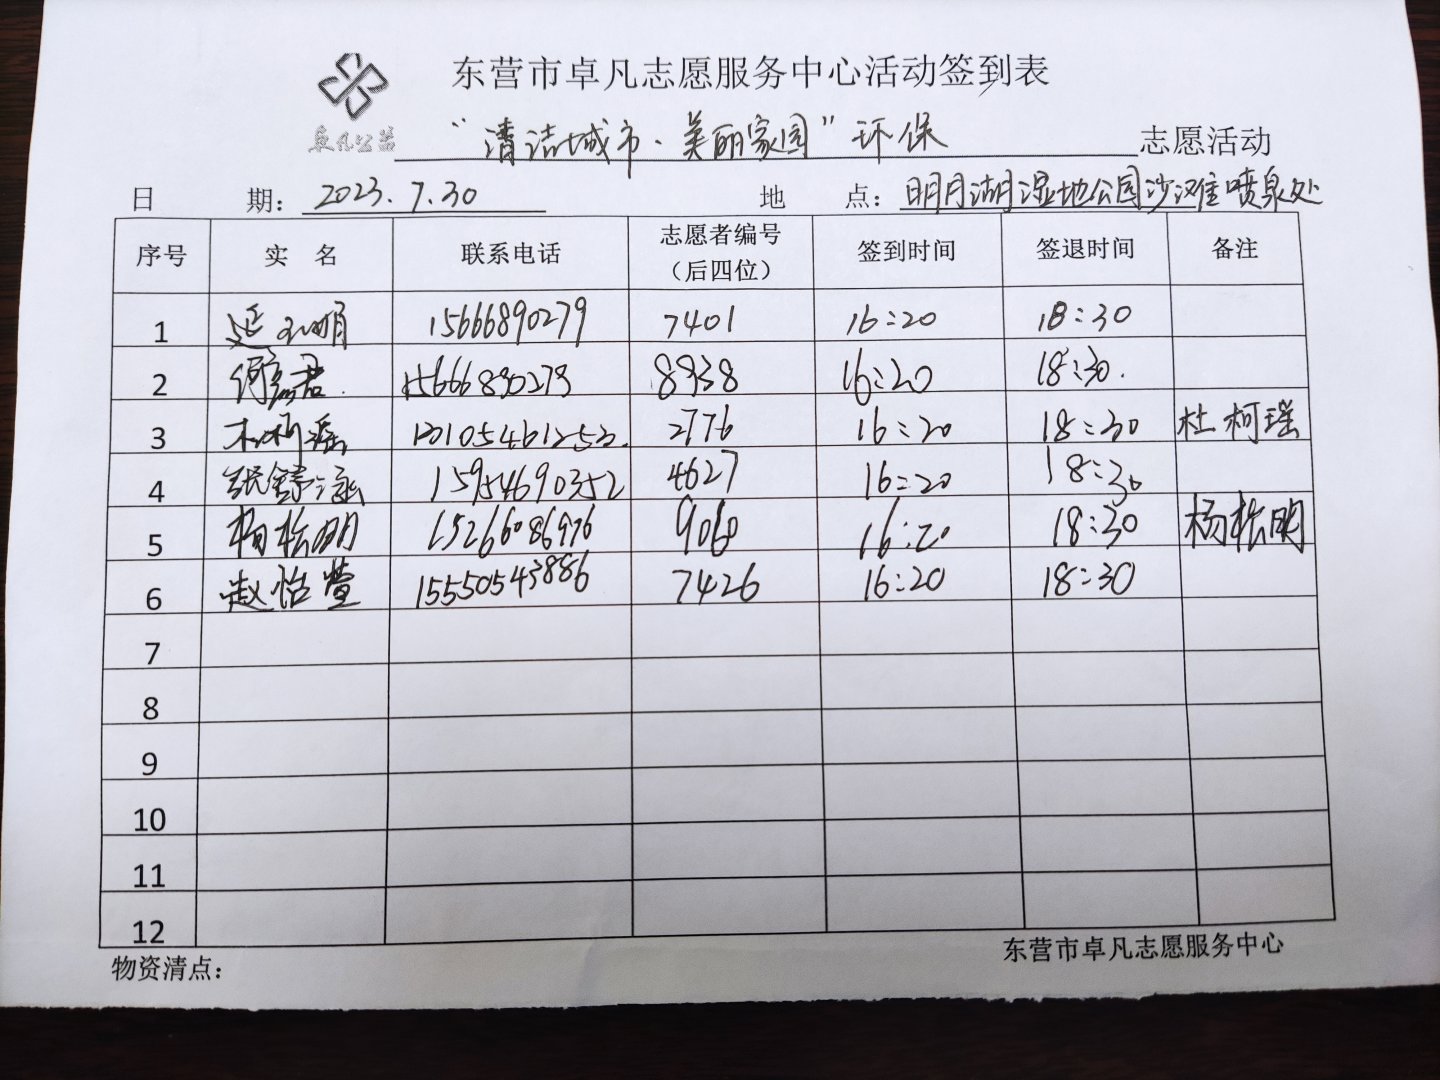 东营市卓凡志愿服务中心活动签到表
卓凡公益
“清洁城市·美丽家园”环保 志愿活动
日 期: 2023.7.30 地 点: 明月湖湿地公园沙滩喷泉处
序号 实 名 联系电话 志愿者编号(后四位) 签到时间 签退时间 备注
1 15666890279 7401 16:20 18:30
2 15666890279 8938 16:20 18:30.
3 杜柯瑶 2776 16:20 18:30 杜柯瑶
4 张舒涵 15954690352 4627 16:20 18:30
5 杨松明 15266086976 9060 16:20 18:30 杨松明
6 赵怡萱 15550543886 7426 16:20 18:30
7
8
9
10
11
12
物资清点: 东营市卓凡志愿服务中心